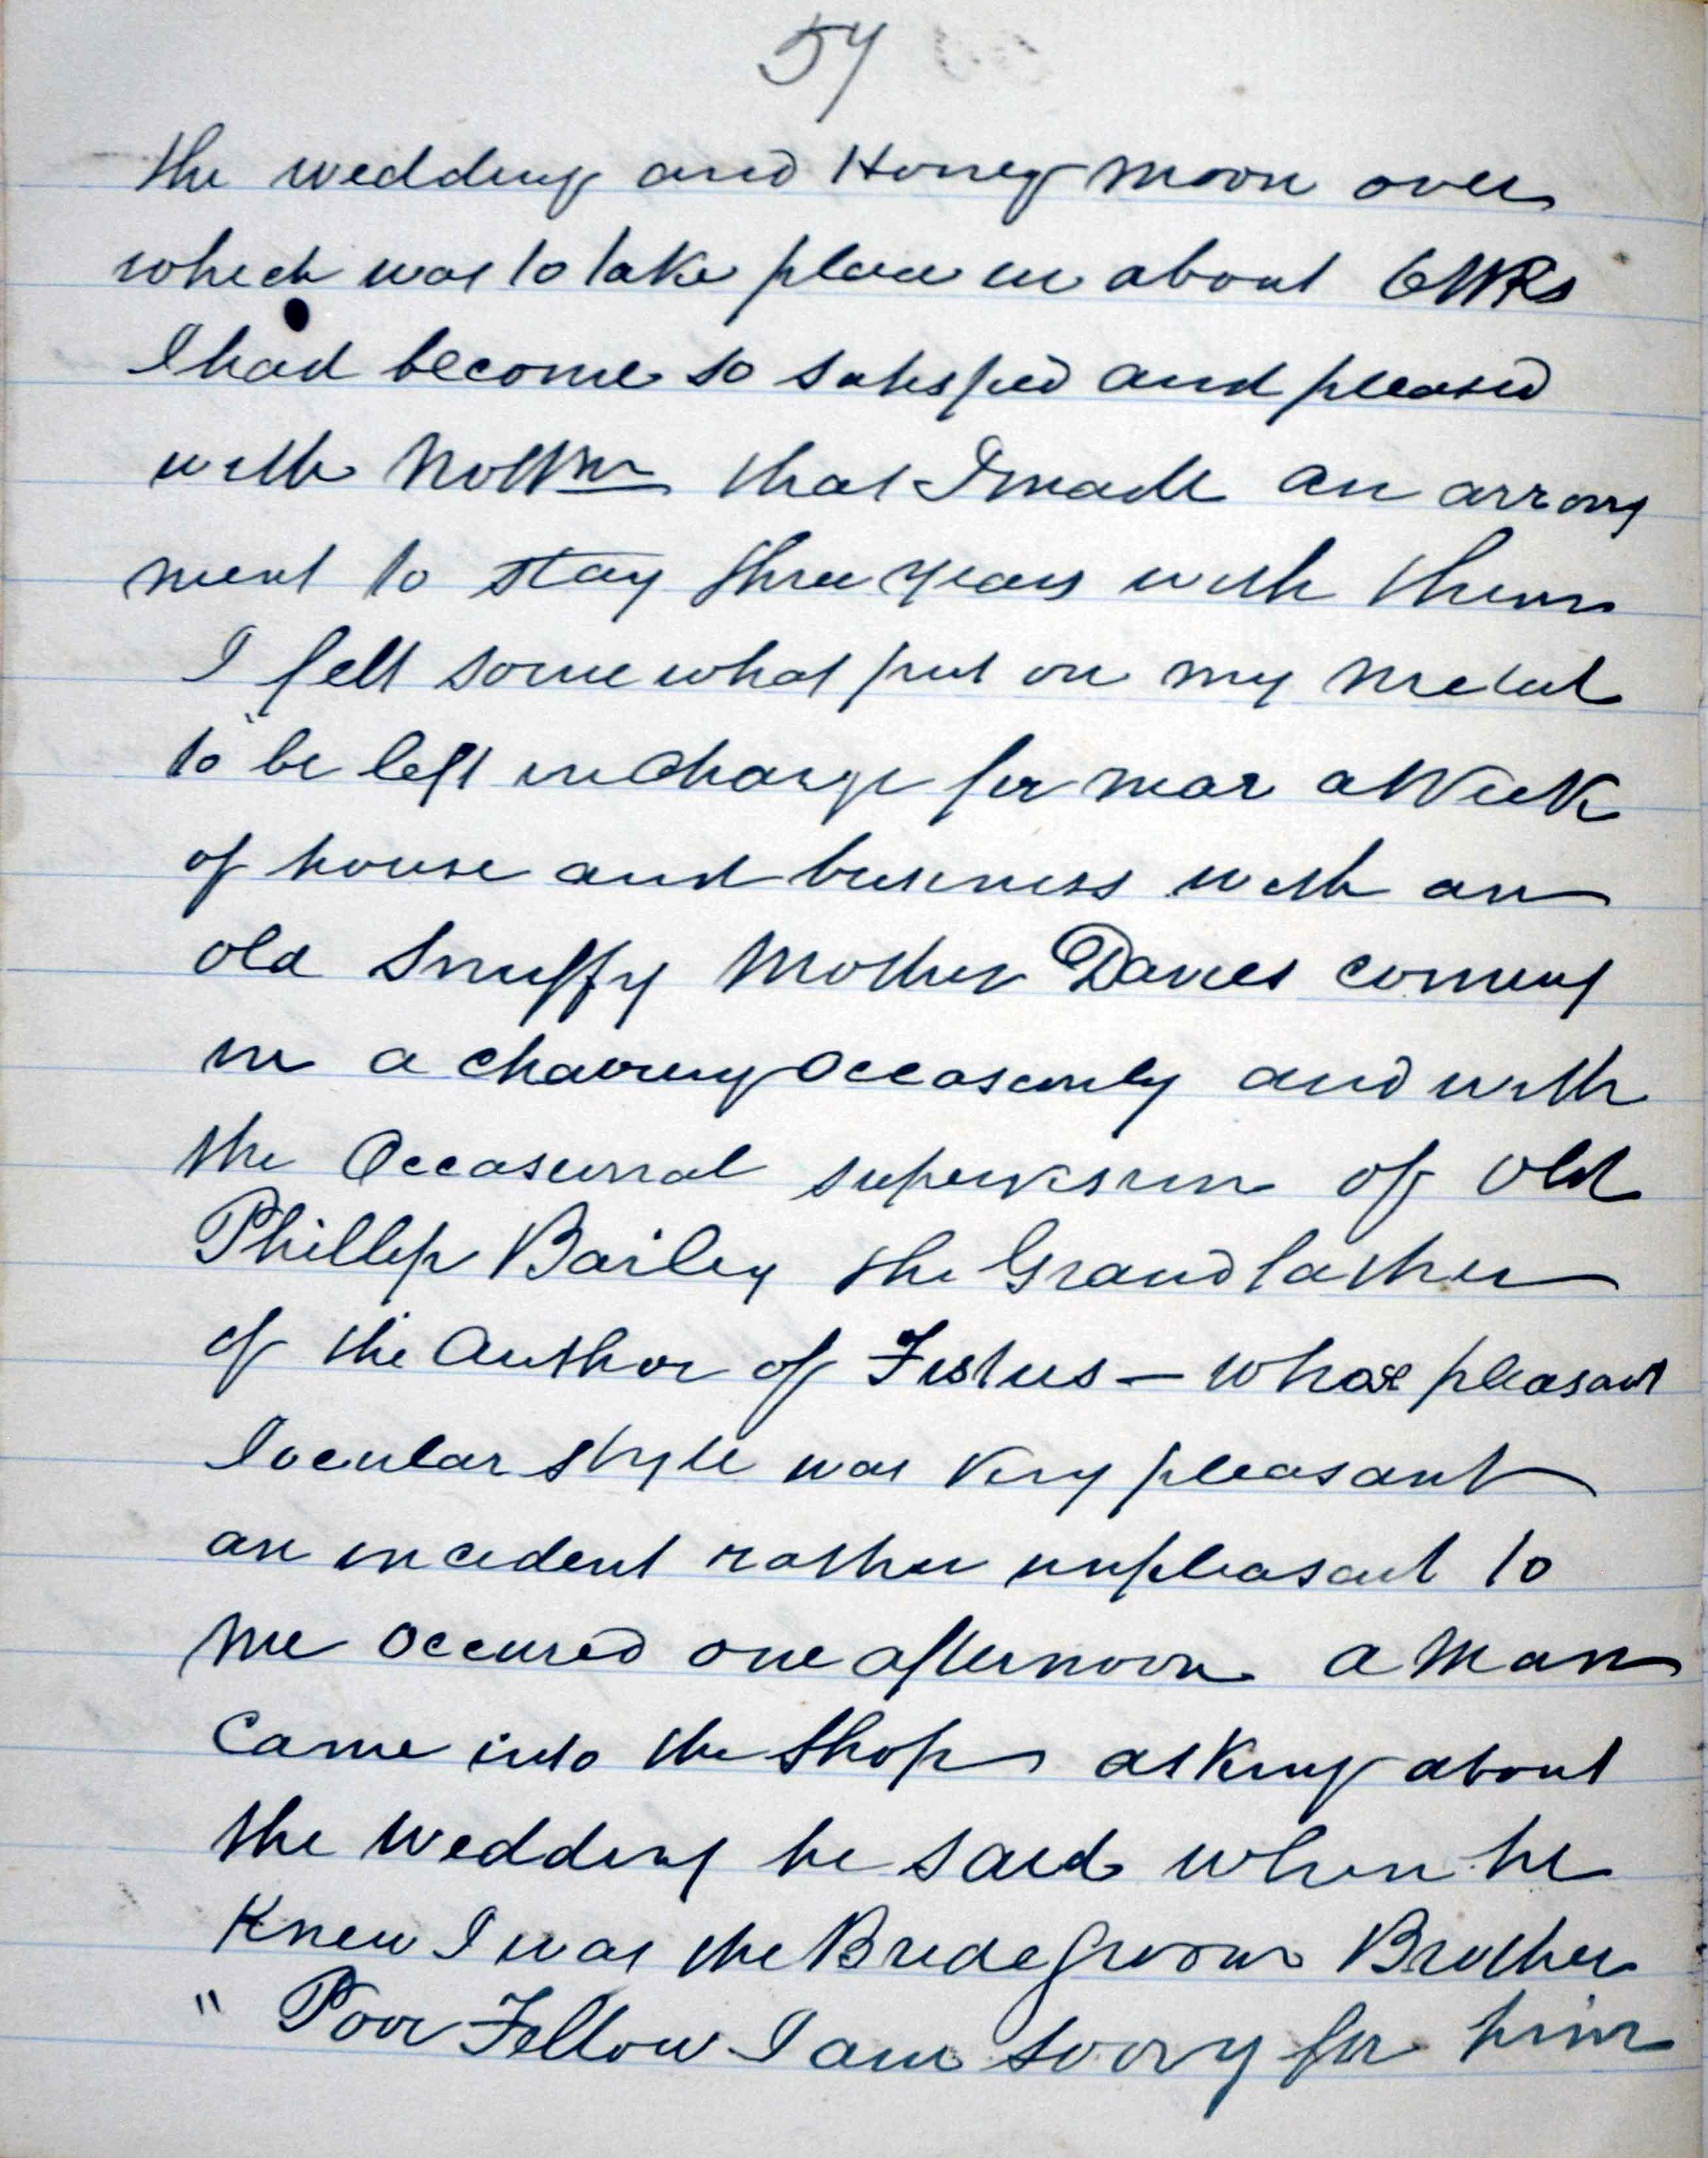 57
the wedding and Honey moon over
which was to take place in about 6 WKs
I had become so satisfied and pleased
with Nottm that I made an arrang
ment to stay three years with them
I felt somewhat put on my metal
to be left in charge for near a Week
of house and business with an
old Snuffy Mother Davies coming
in a chairing occasionly and with
the Occasional supervision of old
Phillip Bailey the Grandfather
of the Author of Festus — whose pleasant
Jocular style was very pleasant
an incident rather unpleasant to
me occured one afternoon a man
Came into the Shop asking about
the wedding he said when he
Knew I was the Bridegroom Brother
" Poor Fellow I am sorry for him